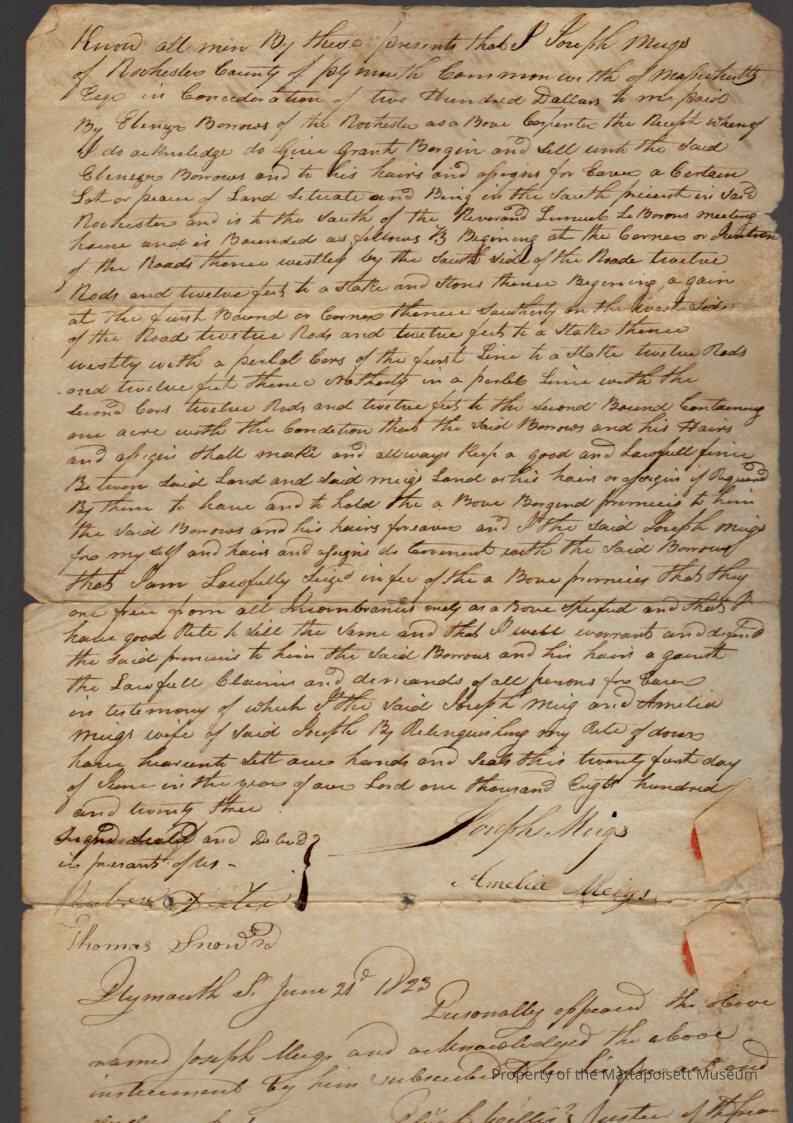 Know all men By these presents that I Joseph Meigs
of Rochester County of plymouth Commonwelth of Massachutts
Esqr in Concideration of two Hundred Dollars to me paid
By Ebenezr Borrows of the Rochester as a Bove Carpenter the Recept whereof
I do acknledge do Give Grant Bargin and Sell unto the Said
Ebenezr Borrows and to his hairs and asigns for Eaver a Certain
Lot or peace of Land Setuate and Being in the South precint in Said
Rochester and is to the South of the Reverand Lemuel LeBorons meeting
house and is Bounded as follows Begining at the Corner or
of the Roads thence westley by the South Side of the Rode twelve
Rods and twelve feet to a Stake and Stons thence Begining a gain
at the furst Bound or Corner thence Southerly on the west Side
of the Road twelve Rods and twelve feet to a Stake thence
westly with a perlel Cors of the furst Line to a Stake twelve Rods
and twelve feet thence Notherly in a perlel Line with the
Second Cors twelve Rods and twelve feet to the Second Bound Containing
one acre with the Condetion that the Said Borrows and his Hairs
and asigns Shall make and allways Keep a good and Lawfull fence
Betwen Said Land and Said meigs Land or his hairs or asigns if Requierd
By them to have and to hold the a Bove Borgend premices to him
the Said Borrows and his hairs foreaver and I the Said Joseph Meigs
for my self and hairs and asigns do Covenent with the Said Borrows
that I am Lawfully Seized in fee of the a Bove premices that they
are free from all Incombrances only as a Bove Specfied and that I
have good Rite to Sell the Same and that I will warrant and defend
the Said premices to him the Said Borrows and his hairs a gainst
the Lawfull Claims and demands of all persons for Eaver
in testemony of which I the Said Joseph Meigs and Amelia
Meigs wife of Said Joseph By Relenquishing my Rite of dower
have hearunto Sett our hands and Seals this twenty furst day
of June in the year of our Lord one thousand Eught hundred
and twenty three
Signd Seald and Delivd
in presants of us -
Joseph Meigs
Amelia Meigs
Reuben Dexter
Thomas Snow 3rd
Plymouth Ss June 21st 1823
Personally appeared the above
named Joseph Meigs and acknowledged the above
instrument by him subscribed to be his free act and
Justice of the peace
Property of the Mattapoisett Museum